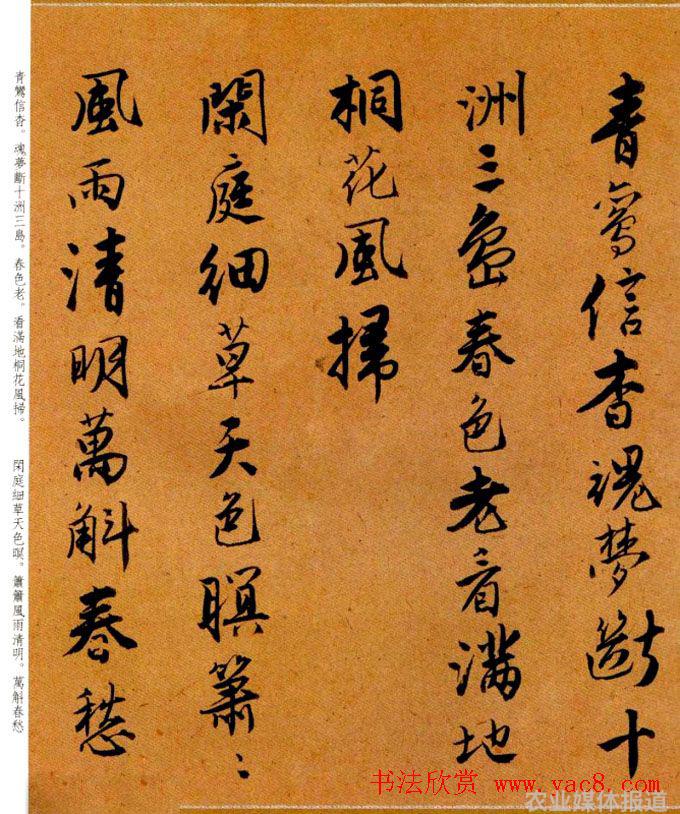 青鸞信杳魂夢斷十
洲三島春色老看滿地
桐花風掃
閑庭細草天色暝簫〻
風雨清明萬斛春愁
青鸞信杳。魂夢斷十洲三島。春色老。看滿地桐花風掃。
閑庭細草天色暝。簫簫風雨清明。萬斛春愁
书法欣赏 www.yac8.com
农业媒体报道